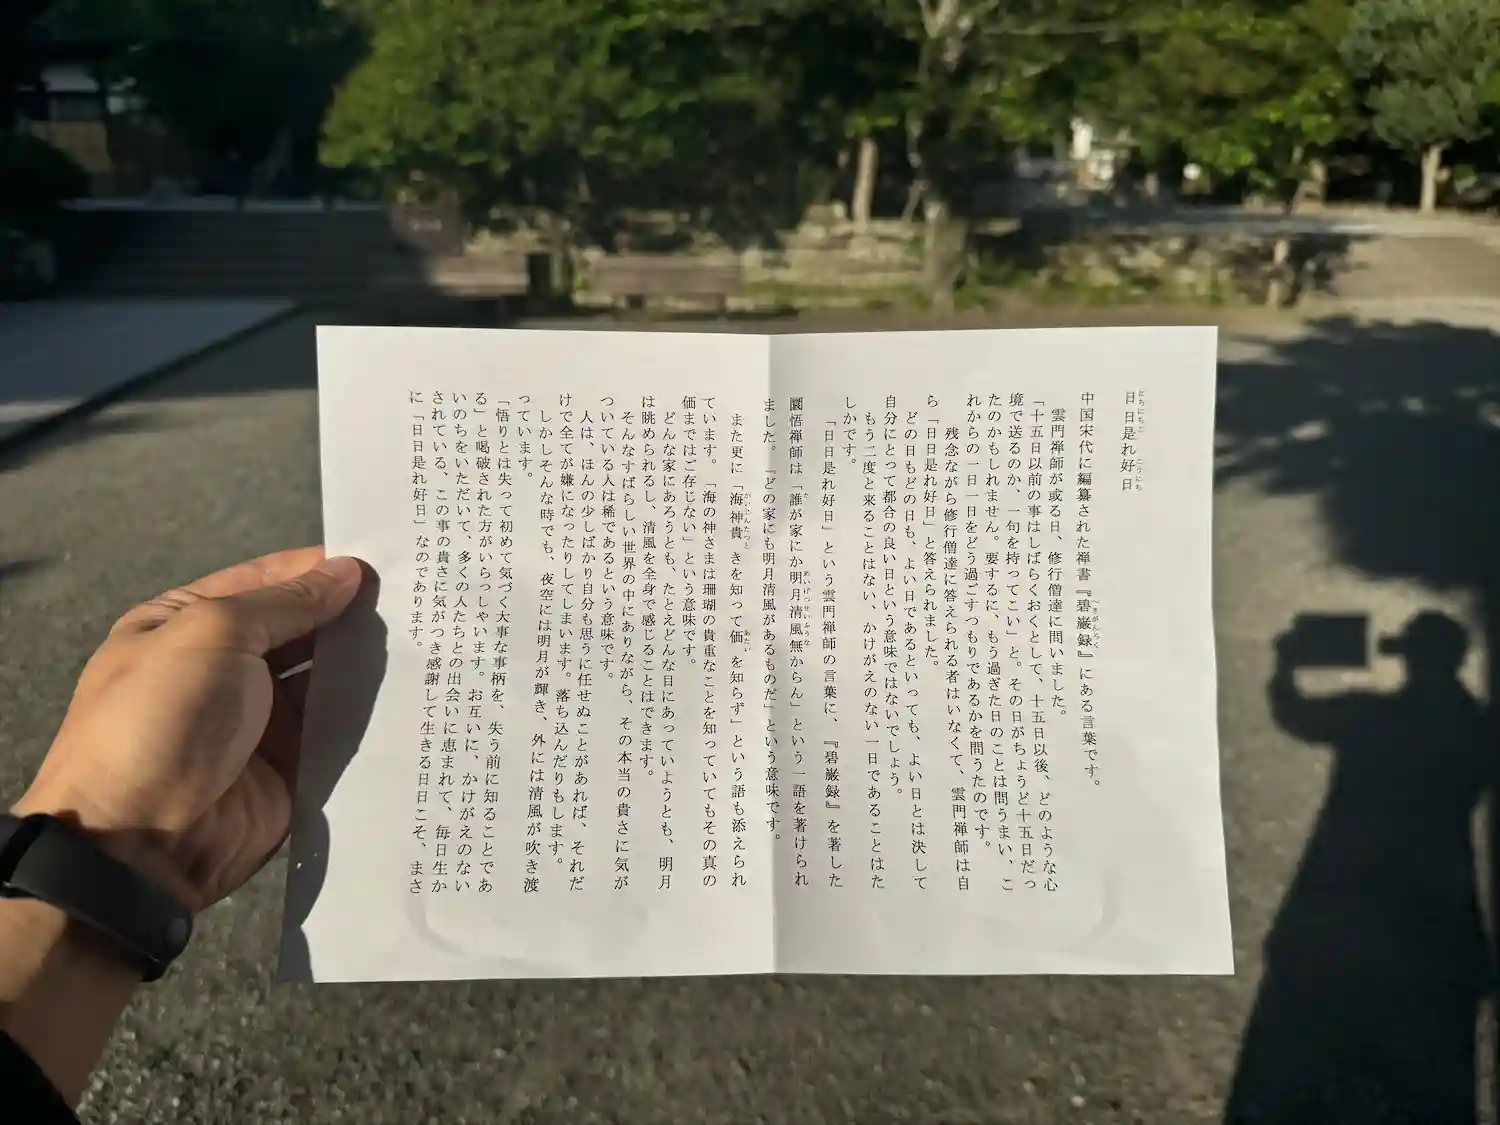 日日是れ好日
中国宋代に編纂された禅書『碧巌録』にある言葉です。
雲門禅師が或る日、修行僧達に問いました。
「十五日以前の事はしばらくおくとして、十五日以後、どのような心
境で送るのか、一句を持ってこい」と。その日がちょうど十五日だっ
たのかもしれません。要するに、もう過ぎた日のことは問うまい、こ
れからの一日一日をどう過ごすつもりであるかを問うたのです。
残念ながら修行僧達に答えられる者はいなくて、雲門禅師は自
ら「日日是れ好日」と答えられました。
どの日もどの日も、よい日であるといっても、よい日とは決して
自分にとって都合の良い日という意味ではないでしょう。
もう二度と来ることはない、かけがえのない一日であることはた
しかです。
「日日是れ好日」という雲門禅師の言葉に、『碧巌録』を著した
圜悟禅師は「誰が家にか明月清風無からん」という一語を著けられ
ました。『どの家にも明月清風があるものだ」という意味です。
また更に「海神貴きを知って価を知らず」という語も添えられ
ています。「海の神さまは珊瑚の貴重なことを知っていてもその真の
価まではご存じない」という意味です。
どんな家にあろうとも、たとえどんな日にあっていようとも、明月
は眺められるし、清風を全身で感じることはできます。
そんなすばらしい世界の中にありながら、その本当の貴さに気が
ついている人は稀であるという意味です。
人は、ほんの少しばかり自分も思うに任せぬことがあれば、それだ
けで全てが嫌になったりしてしまいます。落ち込んだりもします。
しかしそんな時でも、夜空には明月が輝き、外には清風が吹き渡
っています。
「悟りとは失って初めて気づく大事な事柄を、失う前に知ることであ
る」と喝破された方がいらっしゃいます。お互いに、かけがえのない
いのちをいただいて、多くの人たちとの出会いに恵まれて、毎日生か
されている、この事の貴さに気がつき感謝して生きる日日こそ、まさ
に「日日是れ好日」なのであります。